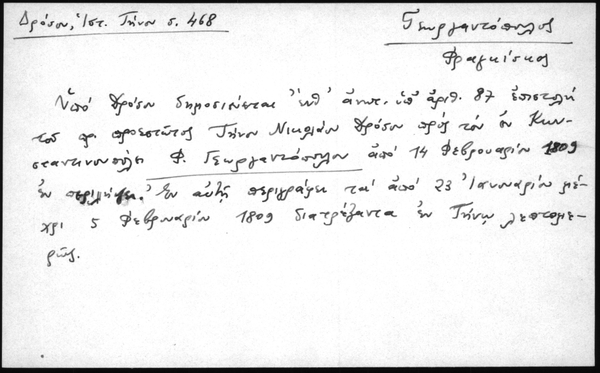 Δρόσου, Ἱστ. Τήνου σ. 468
Γεωργαντόπουλος
Φραγκίσκος
Ὑπό Δρόσου δημοσιεύεται ἀνωτ. ὑπ' ἀριθ. 87 ἐπιστολή
τοῦ προεστῶτος Τήνου Νικολάου Δρόσου πρός τόν ἐν Κων-
σταντινουπόλει Φ. Γεωργαντόπουλον ἀπό 14 Φεβρουαρίου 1809
ἐν περιλήψει. Ἐν αὐτῇ περιγράφει τά ἀπό 23 Ἰανουαρίου μέ-
χρι 5 Φεβρουαρίου 1809 διατρέξαντα ἐν Τήνῳ λεπτομε-
ρῶς.